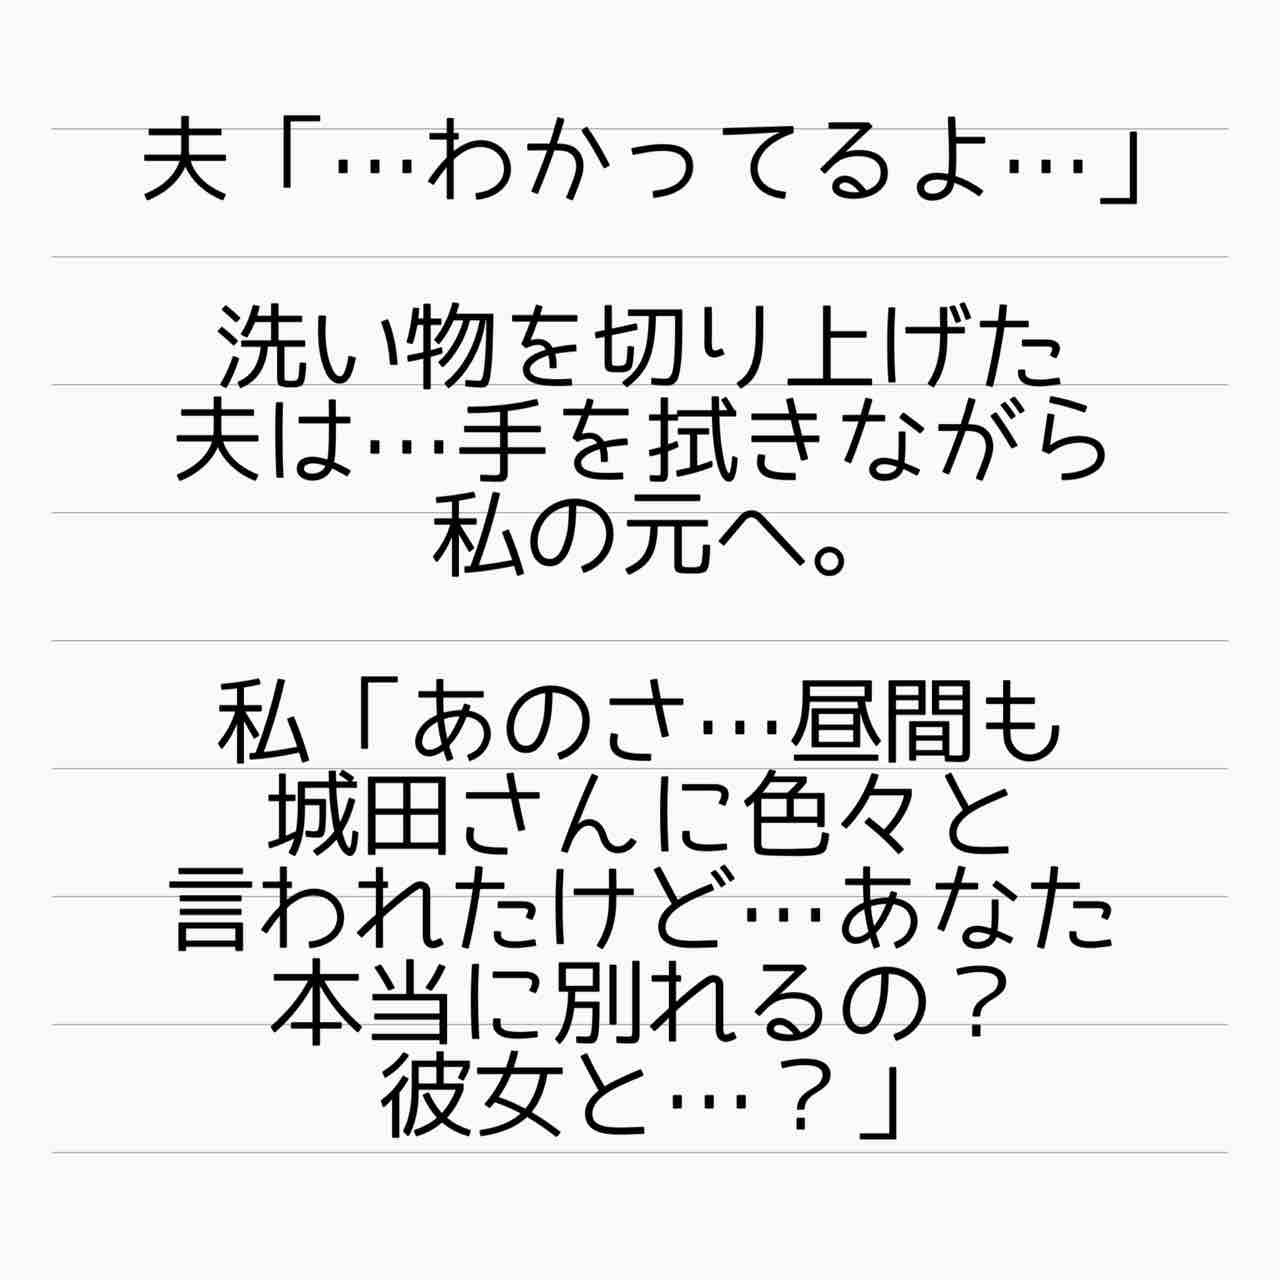 夫「…わかってるよ…」
洗い物を切り上げた
夫は…手を拭きながら
私の元へ。
私「あのさ…昼間も
城田さんに色々と
言われたけど…あなた
本当に別れるの？
彼女と…？」